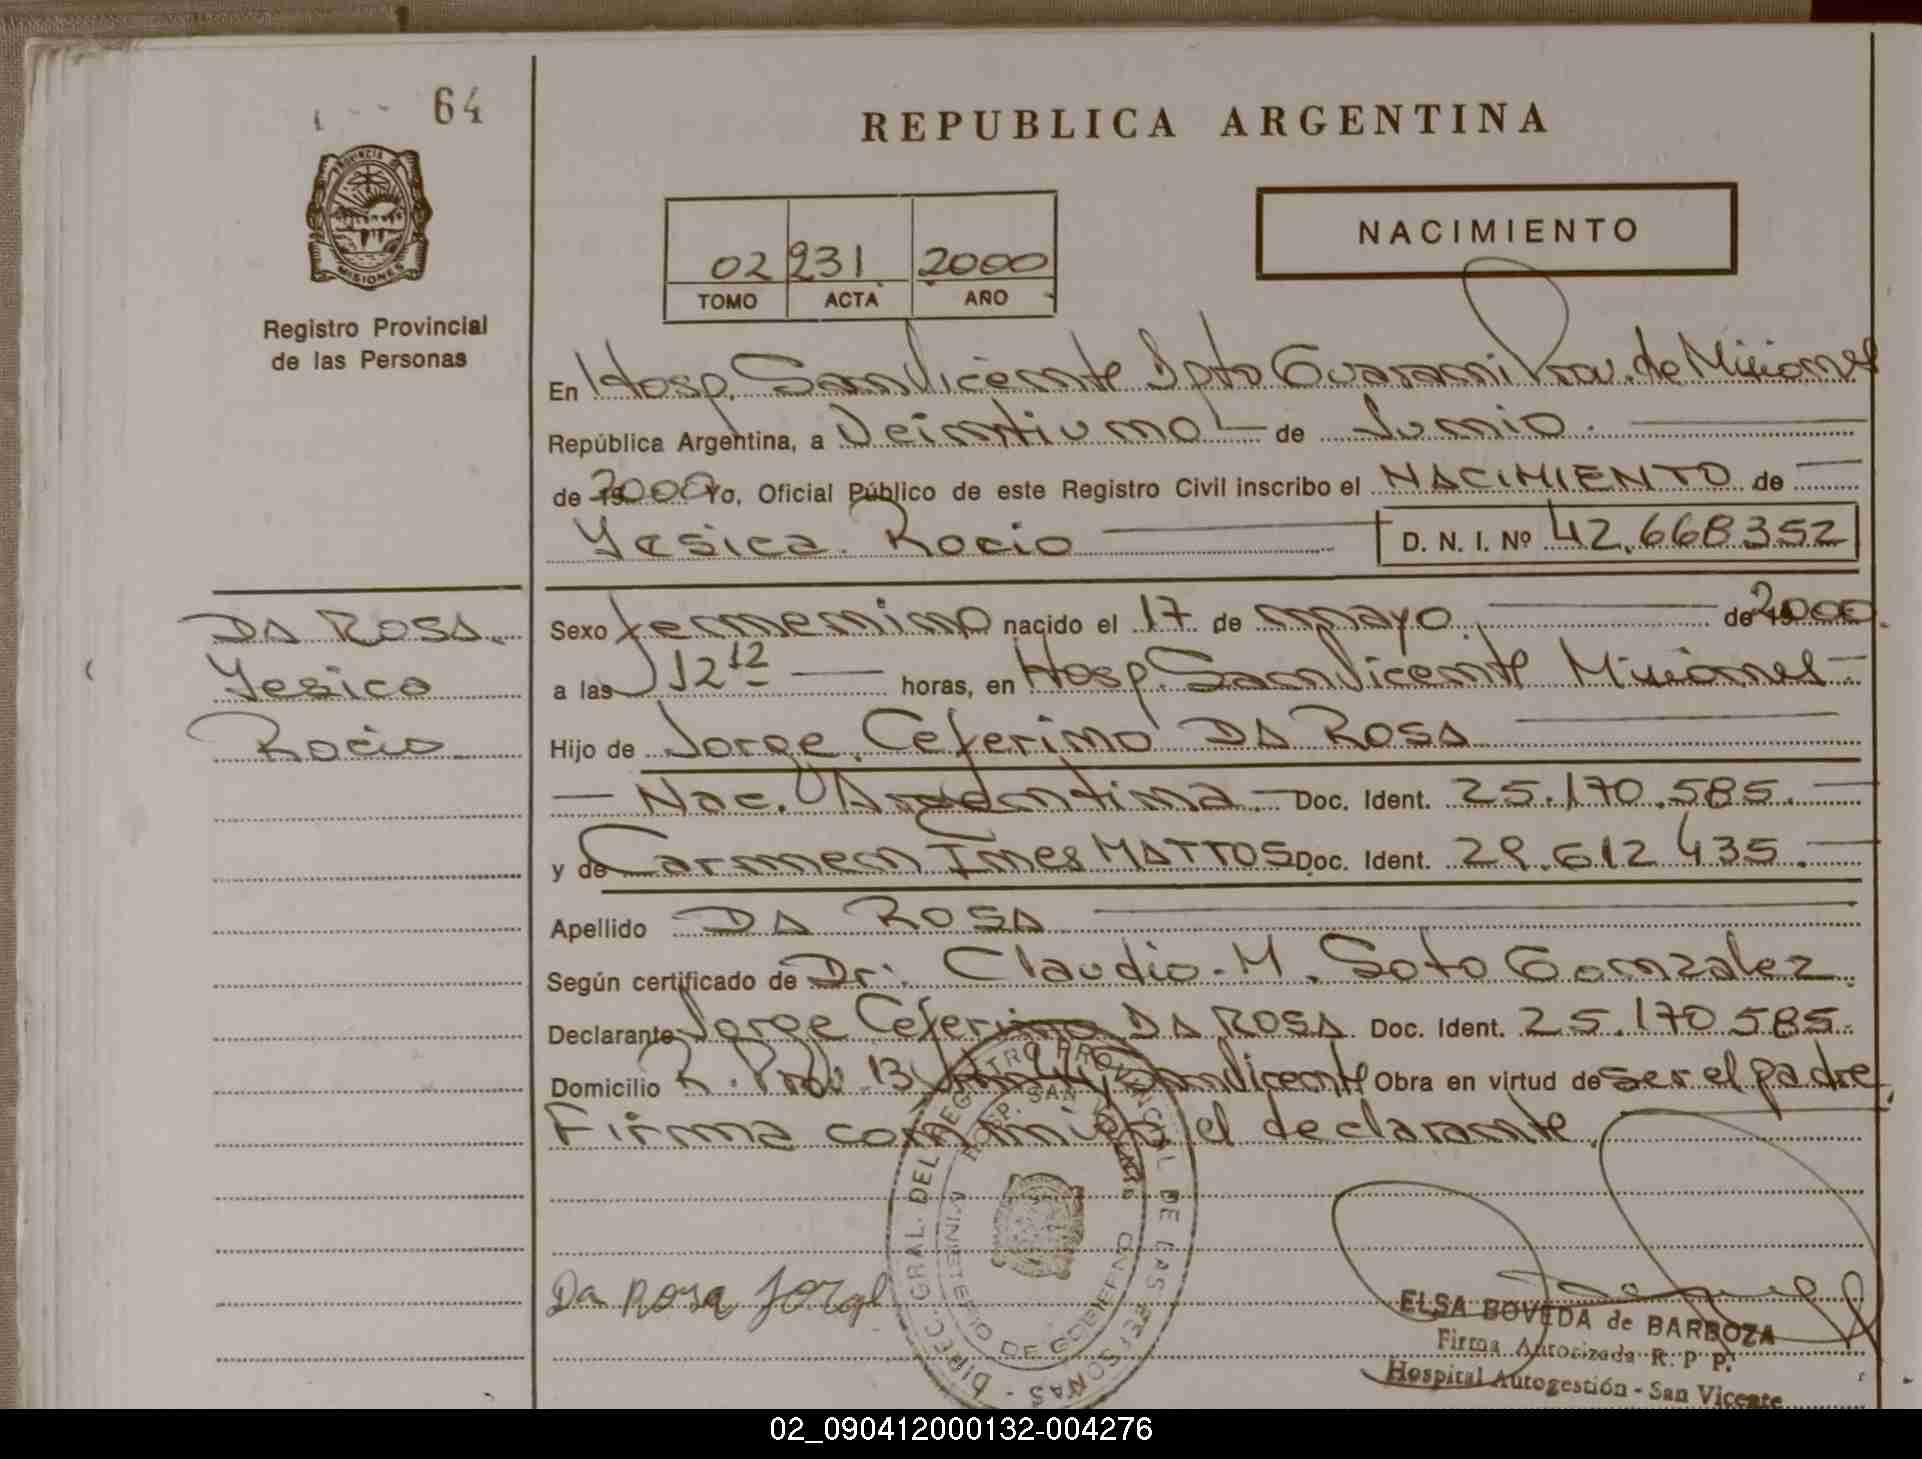 64
REPUBLICA ARGENTINA
PROVINCIA DE MISIONES
Registro Provincial
de las Personas
02 231 2000
TOMO ACTA AÑO
NACIMIENTO
En Hosp. San Vicente Dpto Guarani Prov. de Misiones
República Argentina, a Veintiuno de Junio.
de 2000 Yo, Oficial Público de este Registro Civil inscribo el NACIMIENTO de
Yesica Rocio D. N. I. Nº 42.668352
DA ROSA
Yesica
Rocio
Sexo femenino nacido el 17 de mayo de 2000.
a las 12 12 horas, en Hosp. San Vicente Misiones
Hijo de Jorge Ceferino DA ROSA
Nac. Argentina Doc. Ident. 25.170.585.
y de Carmen Ines MATTOS Doc. Ident. 29.612 435.
Apellido DA ROSA
Según certificado de Dr. Claudio. M. Soto Gonzalez
Declarante Jorge Ceferino DA ROSA Doc. Ident. 25.170 585
Domicilio R. Prov. 13 San Vicente Obra en virtud de ser el padre
Firma conmigo el declarante.
DIREC. GRAL. DEL REGISTRO PROVINCIAL DE LAS PERSONAS
HOSP. SAN VICENTE
MINISTERIO DE GOBIERNO
Da Rosa Jorge
ELSA BOVEDA de BARBOZA
Firma Autorizada R. P P.
Hospital Autogestión - San Vicente
02_090412000132-004276